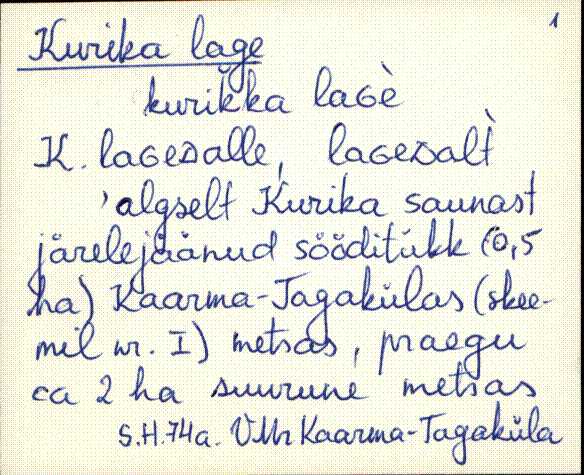 1
Kurika lage
kurikka laGè
K. laGeDalle, laGeDalt̀
'algselt Kurika saunast
järelejäänud sööditükk (0,5
ha) Kaarma-Tagakülas (skee-
mil nr. I) metsas, praegu
ca 2 ha suurune metsas
S.H.74a. VMr Kaarma-Tagaküla